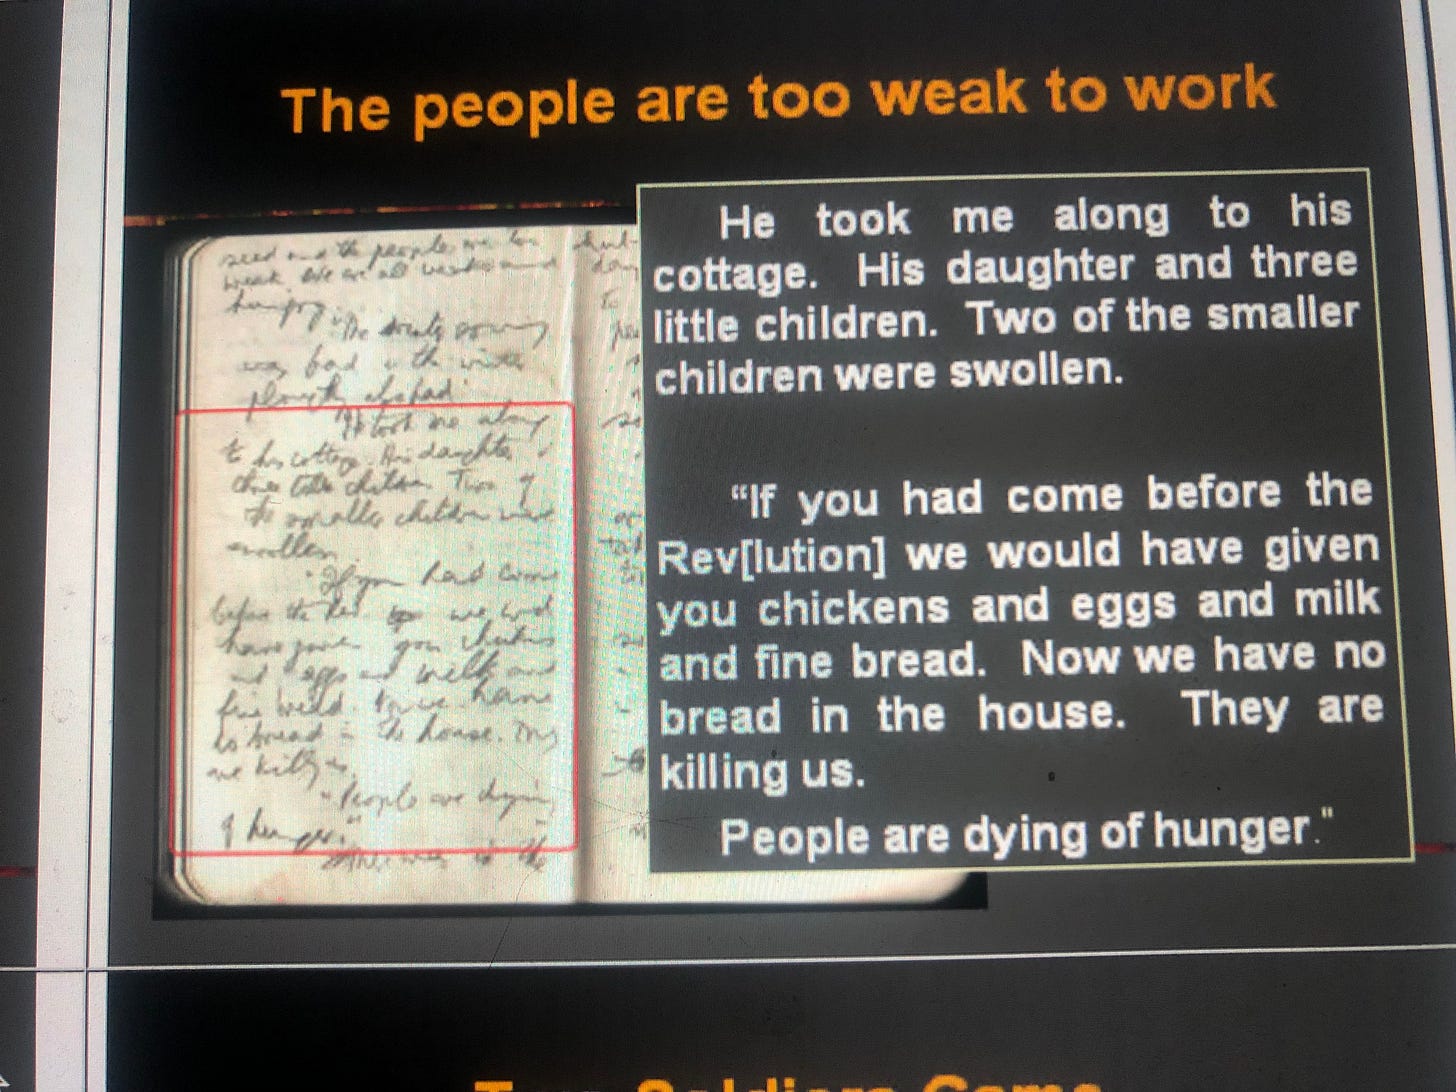 The people are too weak to work
seed and the people are too
weak. We are all weak and
hungry.
sowing
was bad & the winter
bad
He took me along
to his cottage. His daughter &
three little children. Two of
the smaller children were
swollen.
"If you had come
before the Rev we wd
have given you chickens
and eggs and milk and
fine bread. Now we have
no bread in the house. They
are killing us.
"People are dying
of hunger."
He took me along to his
cottage. His daughter and three
little children. Two of the smaller
children were swollen.
“If you had come before the
Rev[lution] we would have given
you chickens and eggs and milk
and fine bread. Now we have no
bread in the house. They are
killing us.
People are dying of hunger."
Two Soldiers Came